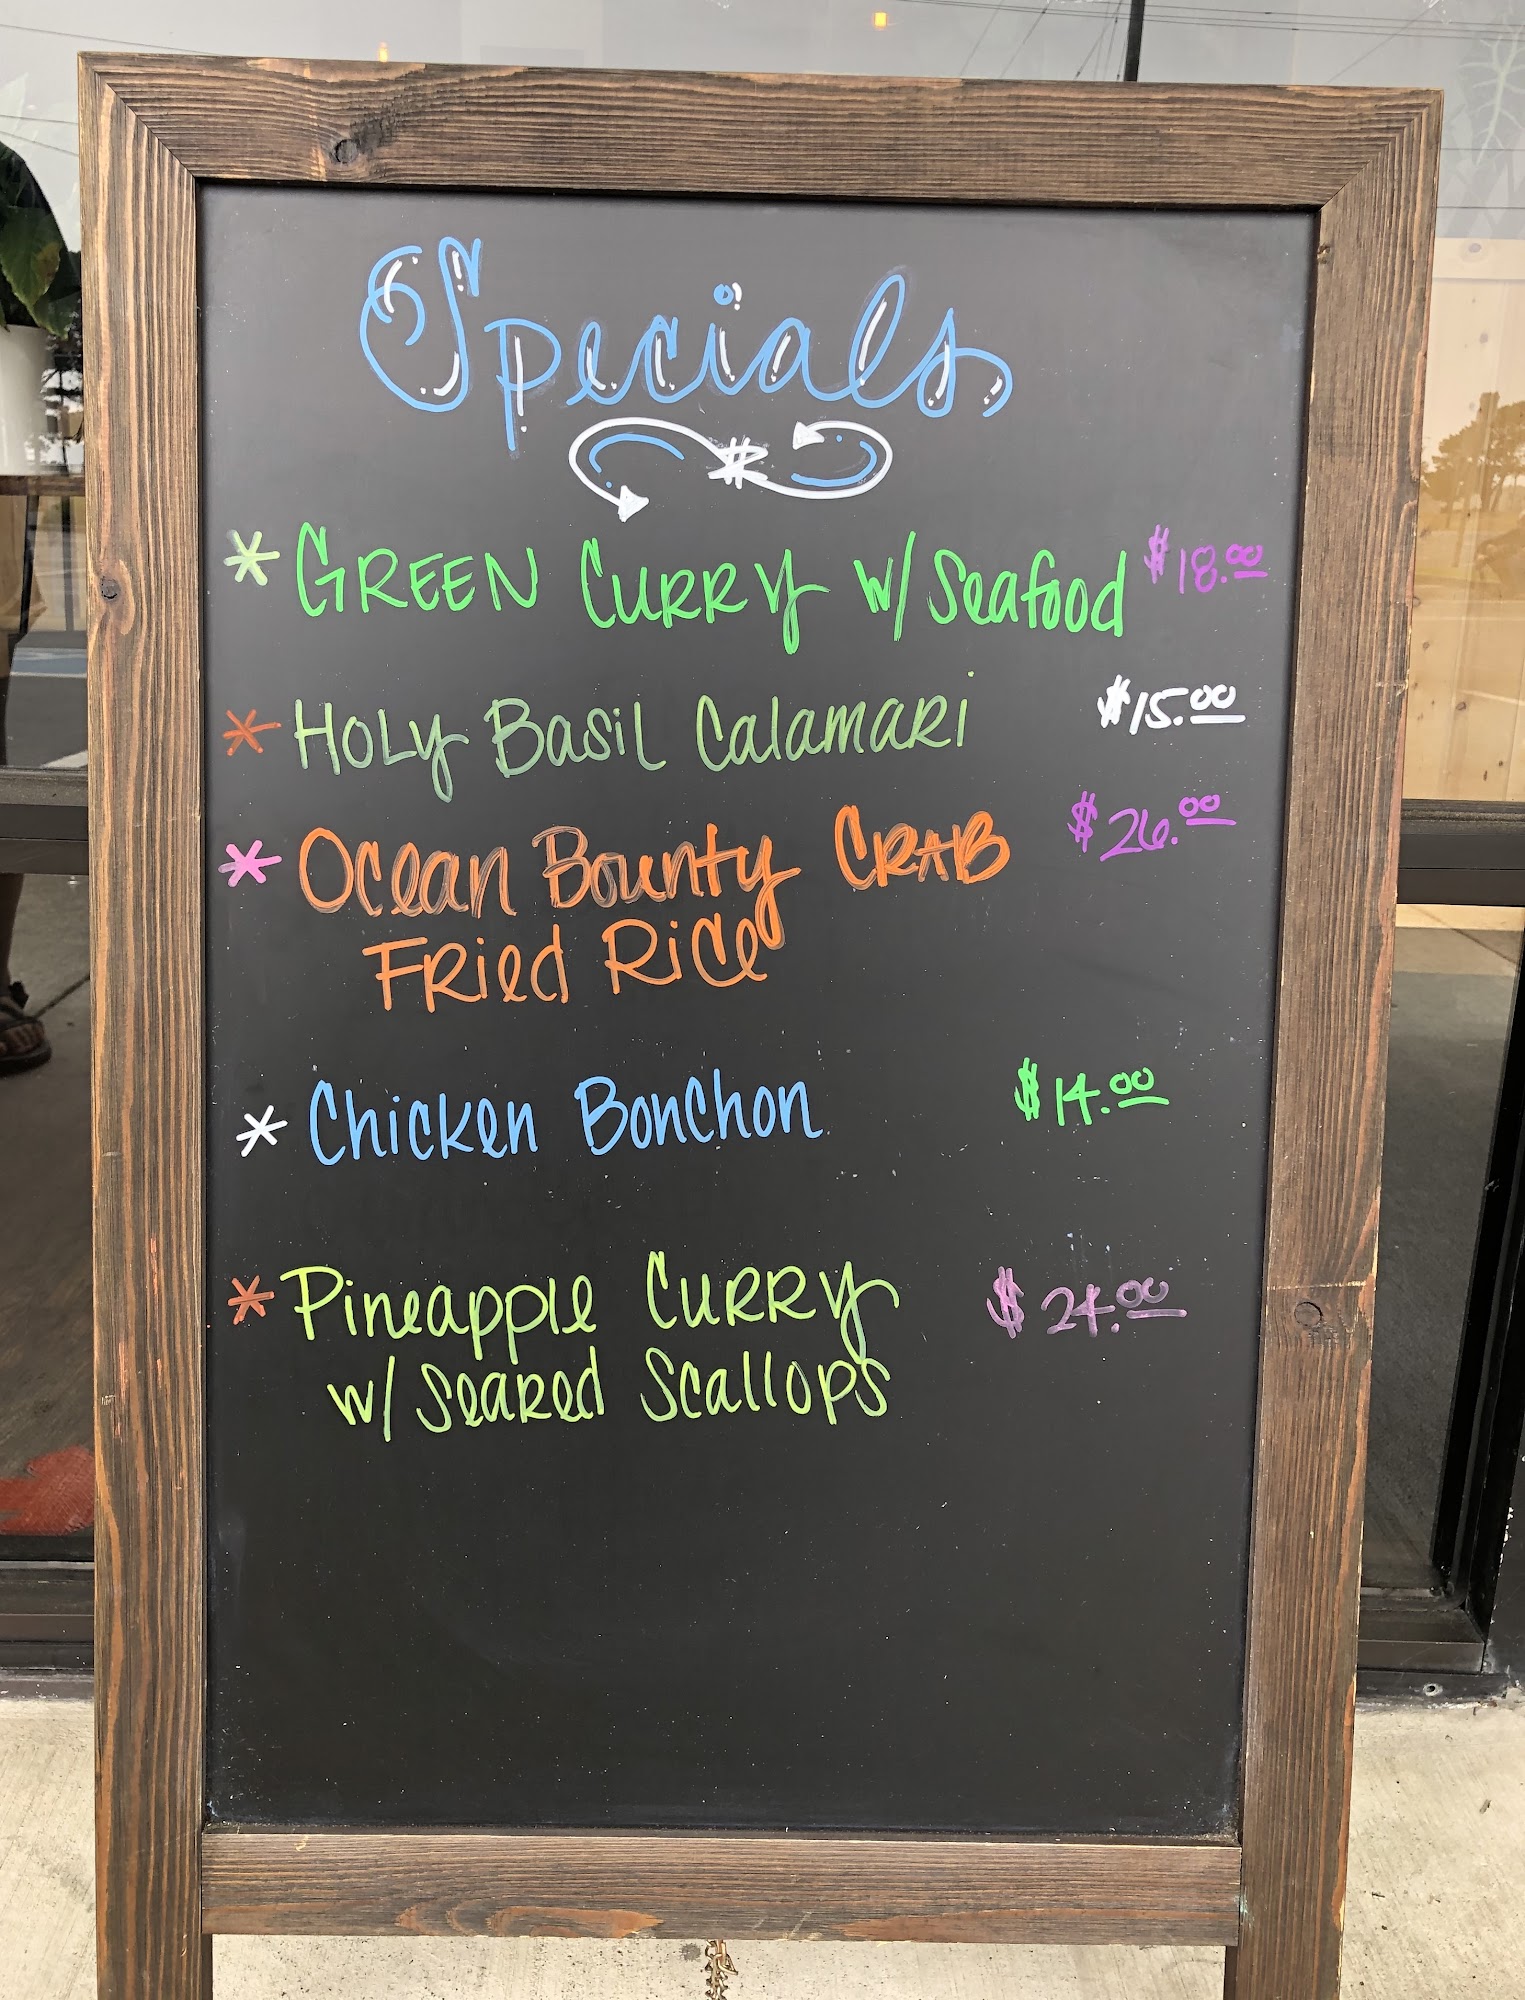 Specials
* GREEN CURRY w/ Seafood $18.00
* Holy Basil Calamari $15.00
* Ocean Bounty CRAB $26.00
Fried Rice
* Chicken Bonchon $14.00
* Pineapple CURRY $24.00
w/ Seared Scallops